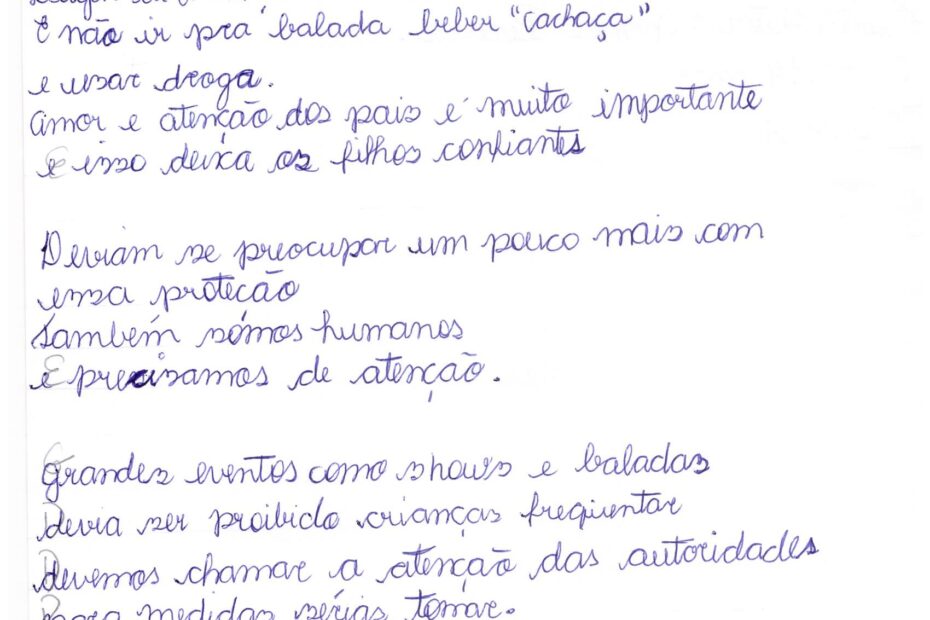 E não ir pra balada beber "cachaça"
e usar droga.
Amor e atenção dos pais é muito importante
E isso deixa os filhos confiantes
Deviam se preocupar um pouco mais com
essa proteção
Também sómos humanos
E precisamos de atenção.
Grandes eventos como shows e baladas
Devia ser proibido crianças freqüentar
Devemos chamar a atenção das autoridades
Para medidas sérias tomar.